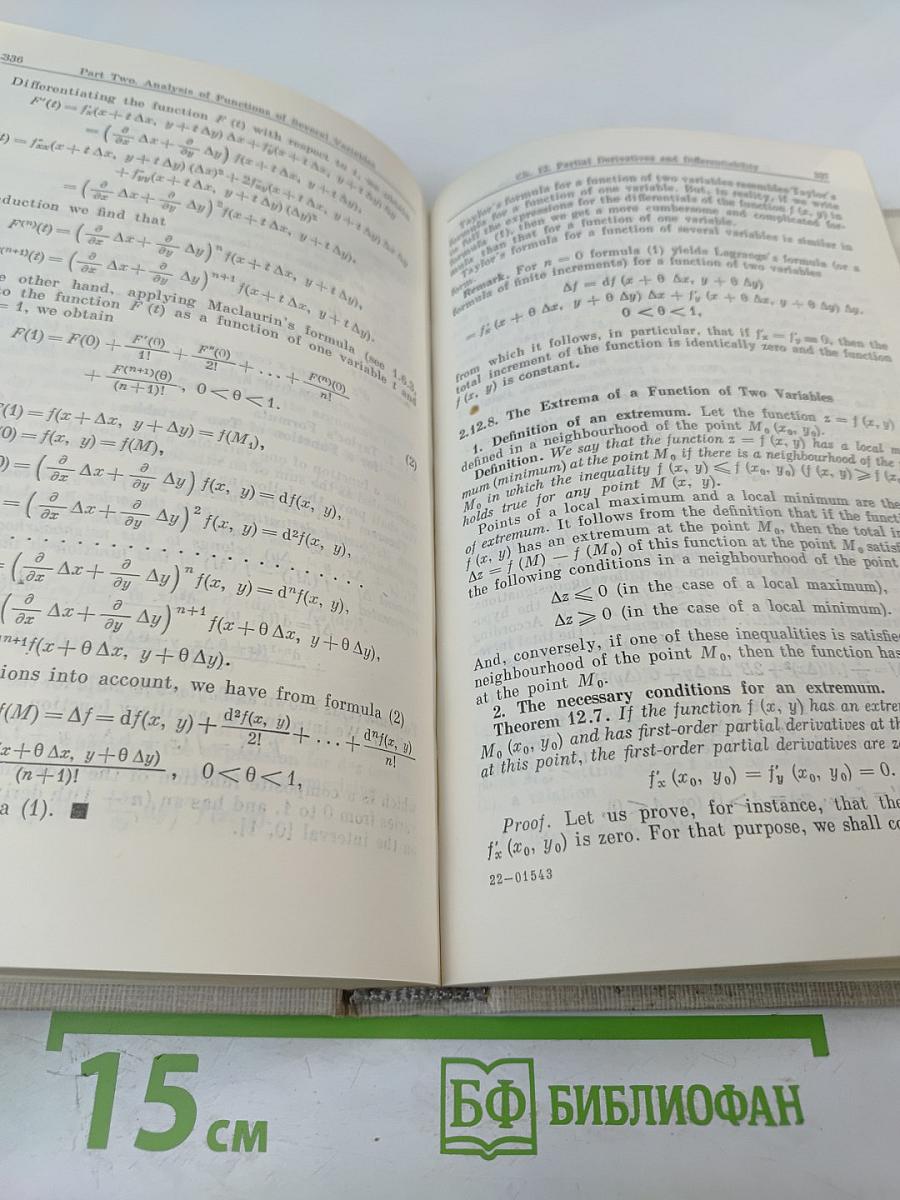 336
Part Two. Analysis of Functions of Several Variables
Differentiating the function F (t) with respect to t, we obtain
F′(t) = f′ₓ(x + t Δx, y + t Δy) Δx + f′ᵧ(x + t Δx, y + t Δy) Δy
= (∂/∂x Δx + ∂/∂y Δy) f(x + t Δx, y + t Δy),
t) = f″ₓₓ(x + t Δx, y + t Δy) (Δx)² + 2f″ₓᵧ(x + t Δx, y + t Δy) Δx Δy
+ f″ᵧᵧ(x + t Δx, y + t Δy) (Δy)²
= (∂/∂x Δx + ∂/∂y Δy)² f(x + t Δx, y + t Δy).
duction we find that
F⁽ⁿ⁾(t) = (∂/∂x Δx + ∂/∂y Δy)ⁿ f(x + t Δx, y + t Δy),
⁽ⁿ⁺¹⁾(t) = (∂/∂x Δx + ∂/∂y Δy)ⁿ⁺¹ f(x + t Δx, y + t Δy).
e other hand, applying Maclaurin's formula (see 1.6.3,
o the function F (t) as a function of one variable t and
= 1, we obtain
F(1) = F(0) + F′(0)/1! + F″(0)/2! + . . . + F⁽ⁿ⁾(0)/n!
+ F⁽ⁿ⁺¹⁾(θ)/(n+1)!, 0 < θ < 1.
(2)
F(1) = f(x + Δx, y + Δy) = f(M₁),
0) = f(x, y) = f(M),
0) = (∂/∂x Δx + ∂/∂y Δy) f(x, y) = df(x, y),
= (∂/∂x Δx + ∂/∂y Δy)² f(x, y) = d²f(x, y),
. . . . . . . . . . . . . . . . . . . .
= (∂/∂x Δx + ∂/∂y Δy)ⁿ f(x, y) = dⁿf(x, y),
(∂/∂x Δx + ∂/∂y Δy)ⁿ⁺¹ f(x + θ Δx, y + θ Δy),
ⁿ⁺¹f(x + θ Δx, y + θ Δy).
ions into account, we have from formula (2)
f(M) = Δf = df(x, y) + d²f(x, y)/2! + . . . + dⁿf(x, y)/n!
x + θ Δx, y + θ Δy)/(n+1)!, 0 < θ < 1,
a (1). ■
Ch. 12. Partial Derivatives and Differentiability
337
Taylor's formula for a function of two variables resembles Taylor's
formula for a function of one variable. But, in reality, if we write
in full the expressions for the differentials of the function f (x, y) in
formula (1), then we get a more cumbersome and complicated for-
mula than that for a function of one variable.
Taylor's formula for a function of several variables is similar in
form.
Remark. For n = 0 formula (1) yields Lagrange's formula (or a
formula of finite increments) for a function of two variables
Δf = df (x + θ Δx, y + θ Δy)
= f′ₓ (x + θ Δx, y + θ Δy) Δx + f′ᵧ (x + θ Δx, y + θ Δy) Δy,
0 < θ < 1,
from which it follows, in particular, that if f′ₓ = f′ᵧ = 0, then the
total increment of the function is identically zero and the function
f (x, y) is constant.
2.12.8. The Extrema of a Function of Two Variables
1. Definition of an extremum. Let the function z = f (x, y)
defined in a neighbourhood of the point M₀ (x₀, y₀).
Definition. We say that the function z = f (x, y) has a local m
mum (minimum) at the point M₀ if there is a neighbourhood of the
M₀ in which the inequality f (x, y) ⩽ f (x₀, y₀) (f (x, y) ⩾ f (x
holds true for any point M (x, y).
Points of a local maximum and a local minimum are the
of extremum. It follows from the definition that if the functi
f (x, y) has an extremum at the point M₀, then the total in
Δz = f (M) − f (M₀) of this function at the point M₀ satisf
the following conditions in a neighbourhood of the point
Δz ⩽ 0 (in the case of a local maximum),
Δz ⩾ 0 (in the case of a local minimum).
And, conversely, if one of these inequalities is satisfie
neighbourhood of the point M₀, then the function has
at the point M₀.
2. The necessary conditions for an extremum.
Theorem 12.7. If the function f (x, y) has an extre
M₀ (x₀, y₀) and has first-order partial derivatives at th
at this point, the first-order partial derivatives are z
f′ₓ (x₀, y₀) = f′ᵧ (x₀, y₀) = 0.
Proof. Let us prove, for instance, that the
f′ₓ (x₀, y₀) is zero. For that purpose, we shall co
22—01543
15 см
БФ БИБЛИОФАН